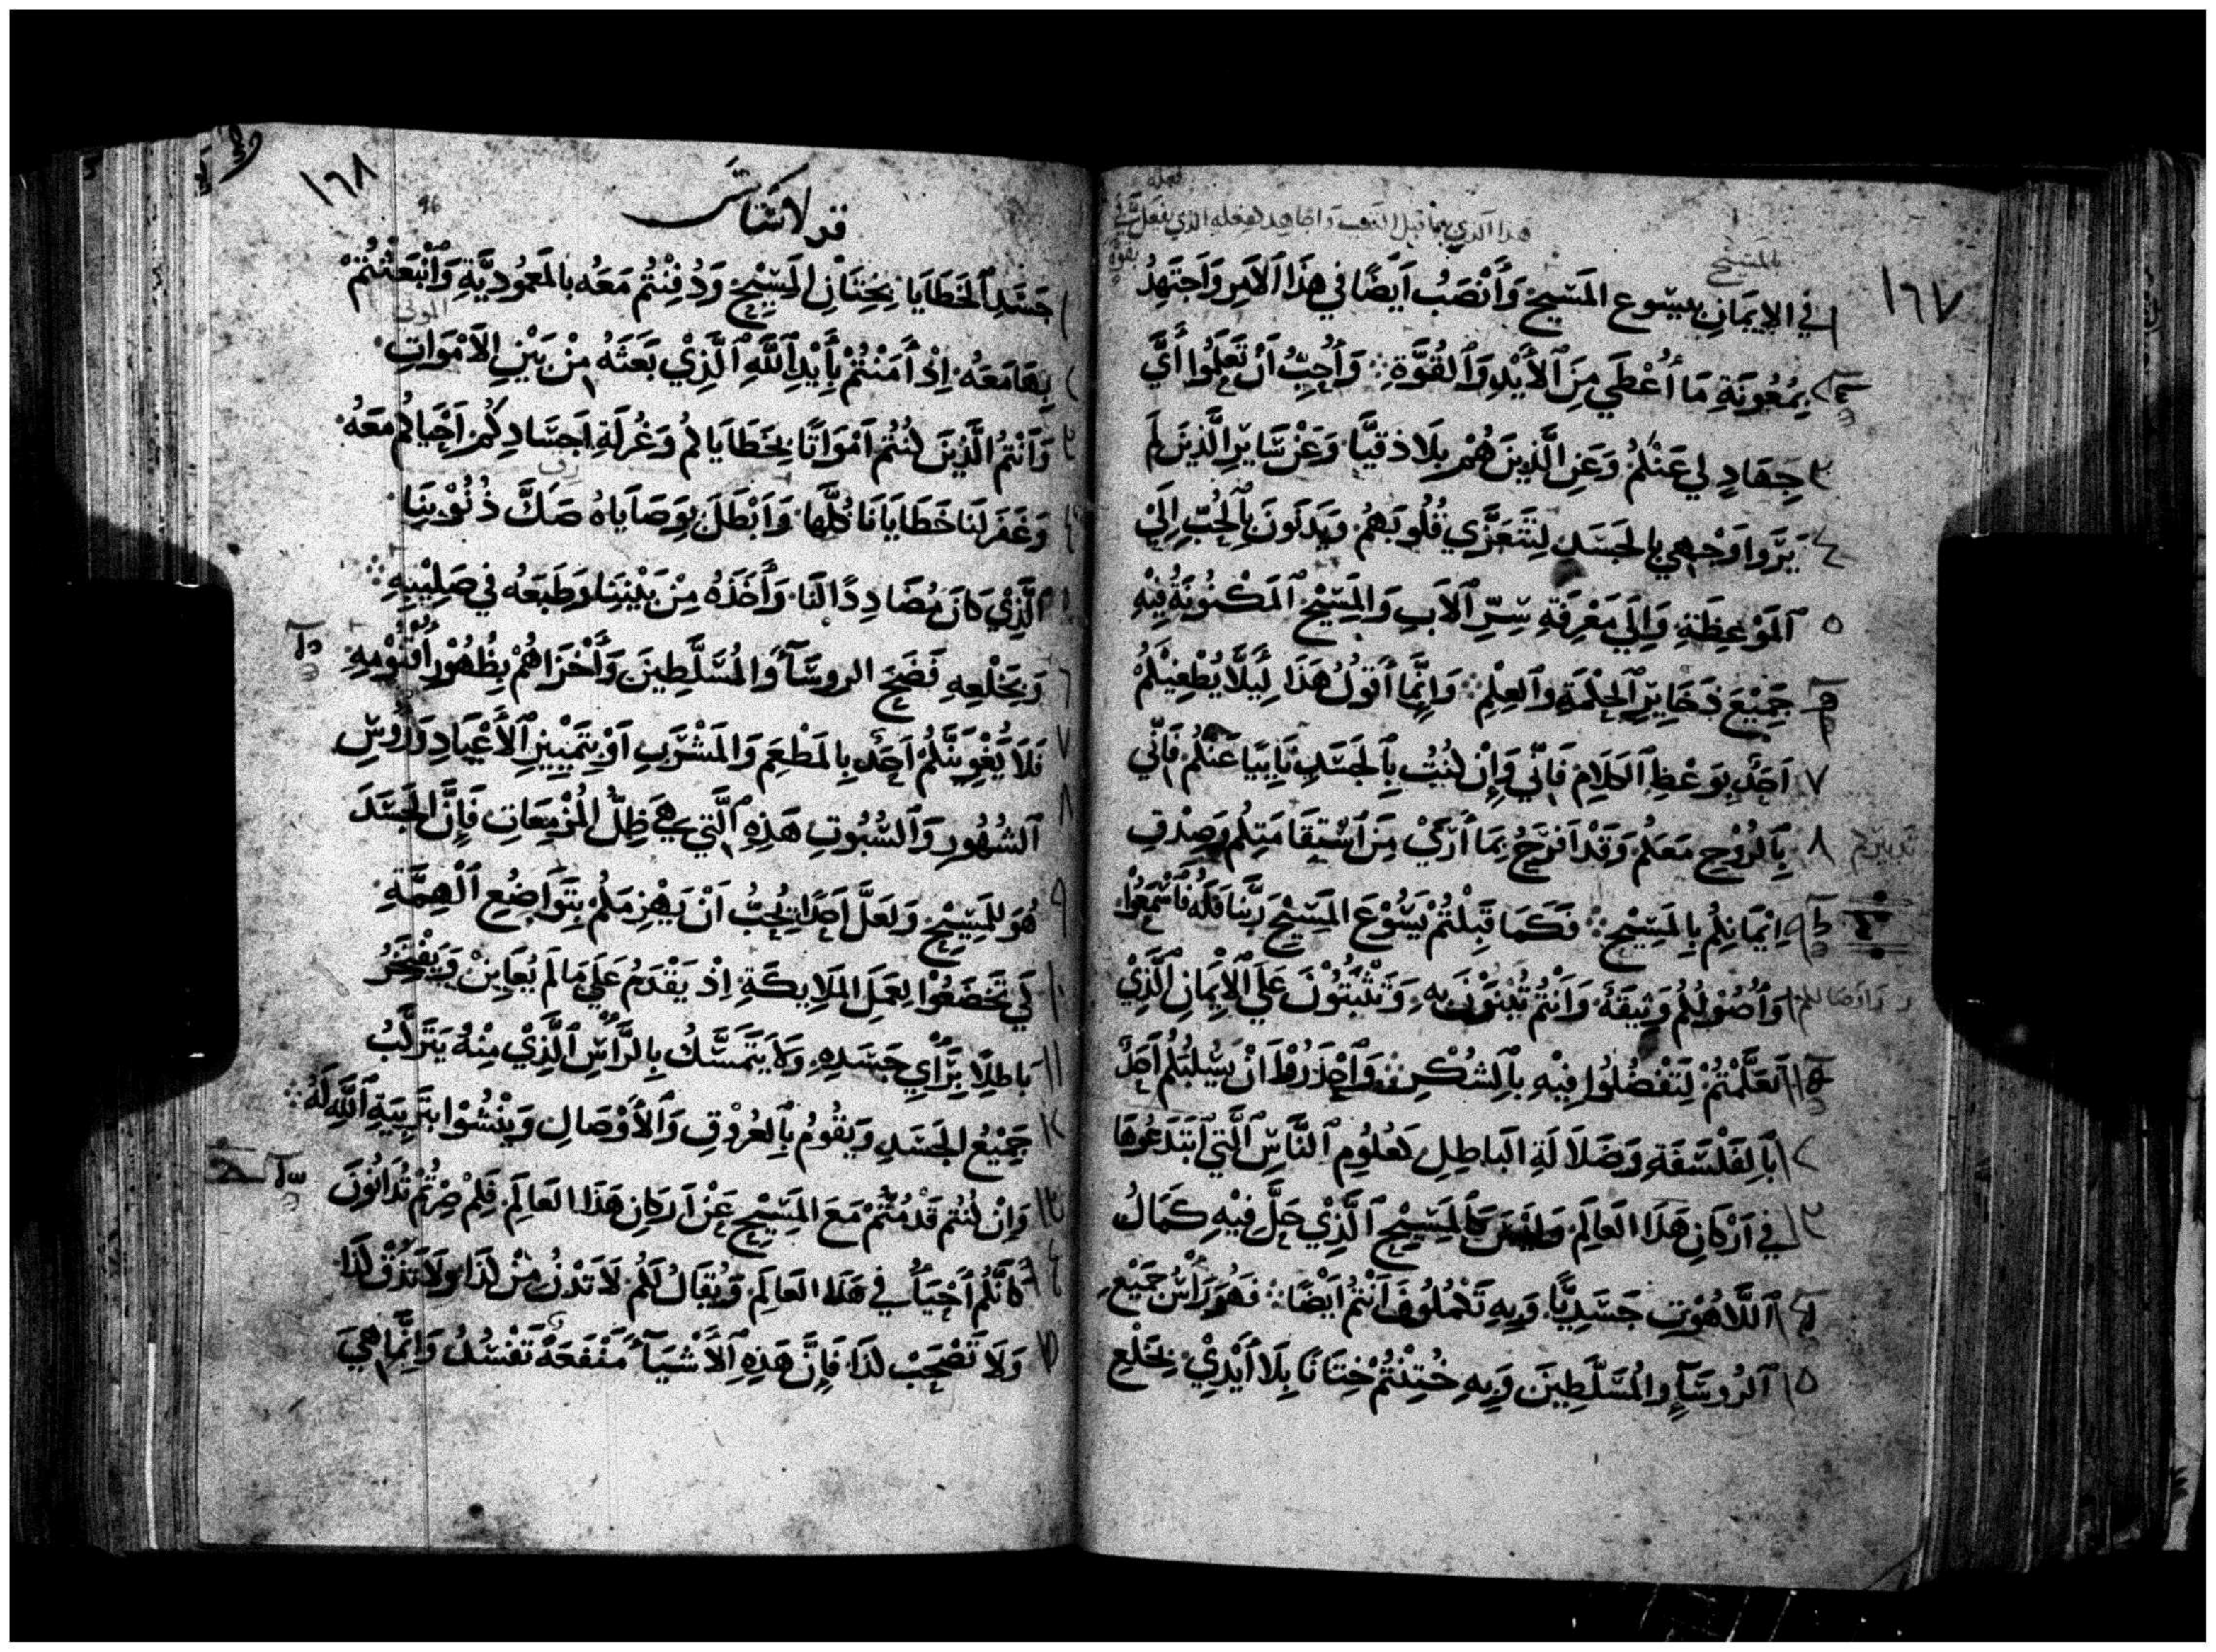 ١٦٧
بالمسيح
هذا الذي بما قبل التعب واجاهد لفعله الذي يفعل في
بقوة
١ في الإِيمَانِ بيسوع المَسِيحْ وَأَنْصَبُ اَيضًا في هَذَا الاَمِر وَاَجتَهِدُ
٢ بِمُعُونَةِ مَا أُعْطَي مِنَ الأَيْدِ وَالقُوَّةِ ۞ وَأُحِبُّ اَنْ تَعلَمُوا أَيَّ
٣ جِهَادٍ لي عَنكُمُ وَعَنِ الَّذِينَ هُمْ بِلَاذقيَّا وَعَنْ سَايِرِ الَّذِينَ لَم
٤ يَرَوا وَجْهِي بِالجَسَدِ لِتَتَعَزَّي قُلُوبَهُمْ وَيَدنَونَ بِالحُبِّ اِلَيْ
٥ المَوْعِظَةِ وَاِلَي مَعْرِفَةِ سِرِّ الاَبِ وَالمَسِيْحْ المَكْنُوُنَةُ فِيْهِ
٦ جَمِيْعَ ذَخَايِرِ الحِكْمَةِ والعِلْمِ ۞ وَاِنَّمَا أَقولُ هَذَا لِيَلَّا يُطْغِيْكُمُ
٧ اَحَدٍ بِوَعْظِ الكَلَامِ فَانّي وَاِنْ كُنتُ بِالجَسَدِ نَايِيًا عَنكُمُ فَانّي
٨ بِالرُوْحِ مَعَكُمْ وَقَدْ اَفرَحُ بِمَا أَرَيْ مِنَ اسْتِقَامَتِكُم وَصِدْقِ
تدبيركم
٩ اِيْمَانِكُم بِالمَسِيْحِ ۞ فَكَمَا قَبِلْتُمْ يَسُوْعَ المَسِيْحَ رَبَّنَا فَلَهُ فَاسْمَعُوْا
١٠ وَأُصُوْلُكُمُ وَثِيقَةً وَاَنْتُمُ تُبْنَوْنَ بِهِ وَتَثْبُتُوْنَ عَلَي الاِيْمَانِ الَّذِيْ
واوصالكم
١١ تَعَلَّمْتُمْ لِتَفْضُلُوا فِيْهِ بِالشُكْرِ ۞ وَاحْذَرُوْا اَنْ يَسْلُبَكُمُ اَحَدٌ
١٢ بَالِفَلْسَفَةِ وَضَلَالَةِ البَاطِلِ كَعُلُوِمِ النَّاسِ الَّتِي ابتَدَعُوهَا
١٣ في اَرْكَانِ هَذَا العَالَمِ وَلَيْسَ كَالمَسِيْحِ الَّذِي حَلَّ فِيْهِ كَمَالُ
١٤ اللَّاهُوْتِ جَسَدِيًّا وَبِهِ تَكمُلُونَ اَنْتُمُ اَيْضًا ۞ فَهُوَ رَأسُ جَمِيْعِ
١٥ الرُوسَآءِ والمُسَلَّطِيْنَ وَبِهِ خُتِنْتُمْ خِتَانًا بِلَا اَيْدِيْ بِخَلْعِ
١٦٨
قولاسايس
١ جَسَدِ الخَطَايَا بِخِتَانِ المَسِيْحِ وَدُفِنْتُم مَعَه بالمَعمُودِيَّةِ وَانْبَعَثْتُمْ
الموتى
٢ بِهَا مَعَهُ اِذْ أَمَنْتُمْ بِأَيْدِ اللَّهِ الَّذِيْ بَعَثَهُ مِنْ بَيْنِ الاَمْوَاتِ
٣ وَاَنتُمُ الَّذِيْنَ كُنتُم اَمْوَاتًا بِخَطَايَاكُم وَغُرلَةِ اَجسَادِكُم اَحْيَاكُم مَعَهُ
٤ وَغَفَر لَنَا خَطَايَانَا كُلَّهَا وَاَبْطَلَ بِوَصَايَاهُ صَكَّ ذُنُوْبِنَا
٥ الَّذِيْ كَانَ مُضَادِدًا لَنَا وَأَخَذَهُ مِنْ بَيْنِنَا وَطَبَعَه في صَلِيْبِهِ ۞
٦ وَبِخَلْعِهِ فَضَحَ الروسَآءَ وَالمُسَلَّطِينَ وَأَخْزَاهُمْ بِظُهُوْرِ أُقنُوْمِهِ
٧ فَلَا يُغْوِيَنَّكُمْ اَحَد بِالمَطْعَمِ وَالمَشْرَبِ اَوْ بِتَمْيِيْزِ الأَعْيَادِ وَرُوُسِ
٨ الشُهُورِ وَالسُّبُوتِ هَذِهِ الَّتِي هِيَ ظِلُّ المُزْمِعَاتِ فَإِنَّ الجَسَدَ
٩ هُوَ لِلمَسِيْحِ وَلَعَلَّ اَحَدًا يُحِبُّ اَنْ يَهْزِمَكُمْ بِتَوَاضُعِ الهِمَّةِ
١٠ لَي تَخضَعُوْا لِعَمَلِ المَلَايِكَةِ اِذْ يَقْدَمُ عَلَي مَا لَم يُعَايِنْ وَيَفْتَخِرُ
١١ بَاطِلًا بِرَأيِ جَسَدِهِ وَلاَ يَتَمَسَّكُ بِالرَّأسِ الَّذِيْ مِنْهُ يَتَرَكَّبُ
١٢ جَمِيْعُ الجَسَدِ وَيَقُومُ بِالعُرُوْقِ وَالأَوْصَالِ وَيَنْشُوْا بتَرْبِيَةِ اللَّهِ لَهُ ۞
١٣ وَاِنْ كُنْتُم قَدْ مُتُّمْ مَعَ المَسِيْحِ عَنْ اَركَانِ هَذَا العَالَمِ فَلِمْ صِرْتُمْ تُدَانُوْنَ
١٤ كَانَّكُم أَحْيَآءُ في هَذَا العَالَمِ وَيُقَالُ لَكُم لَا تَدْنُ مِنْ كَذَا وَلَا تَذُقْ كَذَا
١٥ وَلَا تَصْحَبْ كَذَا فَاِنَّ هَذِهِ الاَشْيَآءَ مَنْفَعَةً تَفْسُدُ وَاِنَّمَا هِيَ